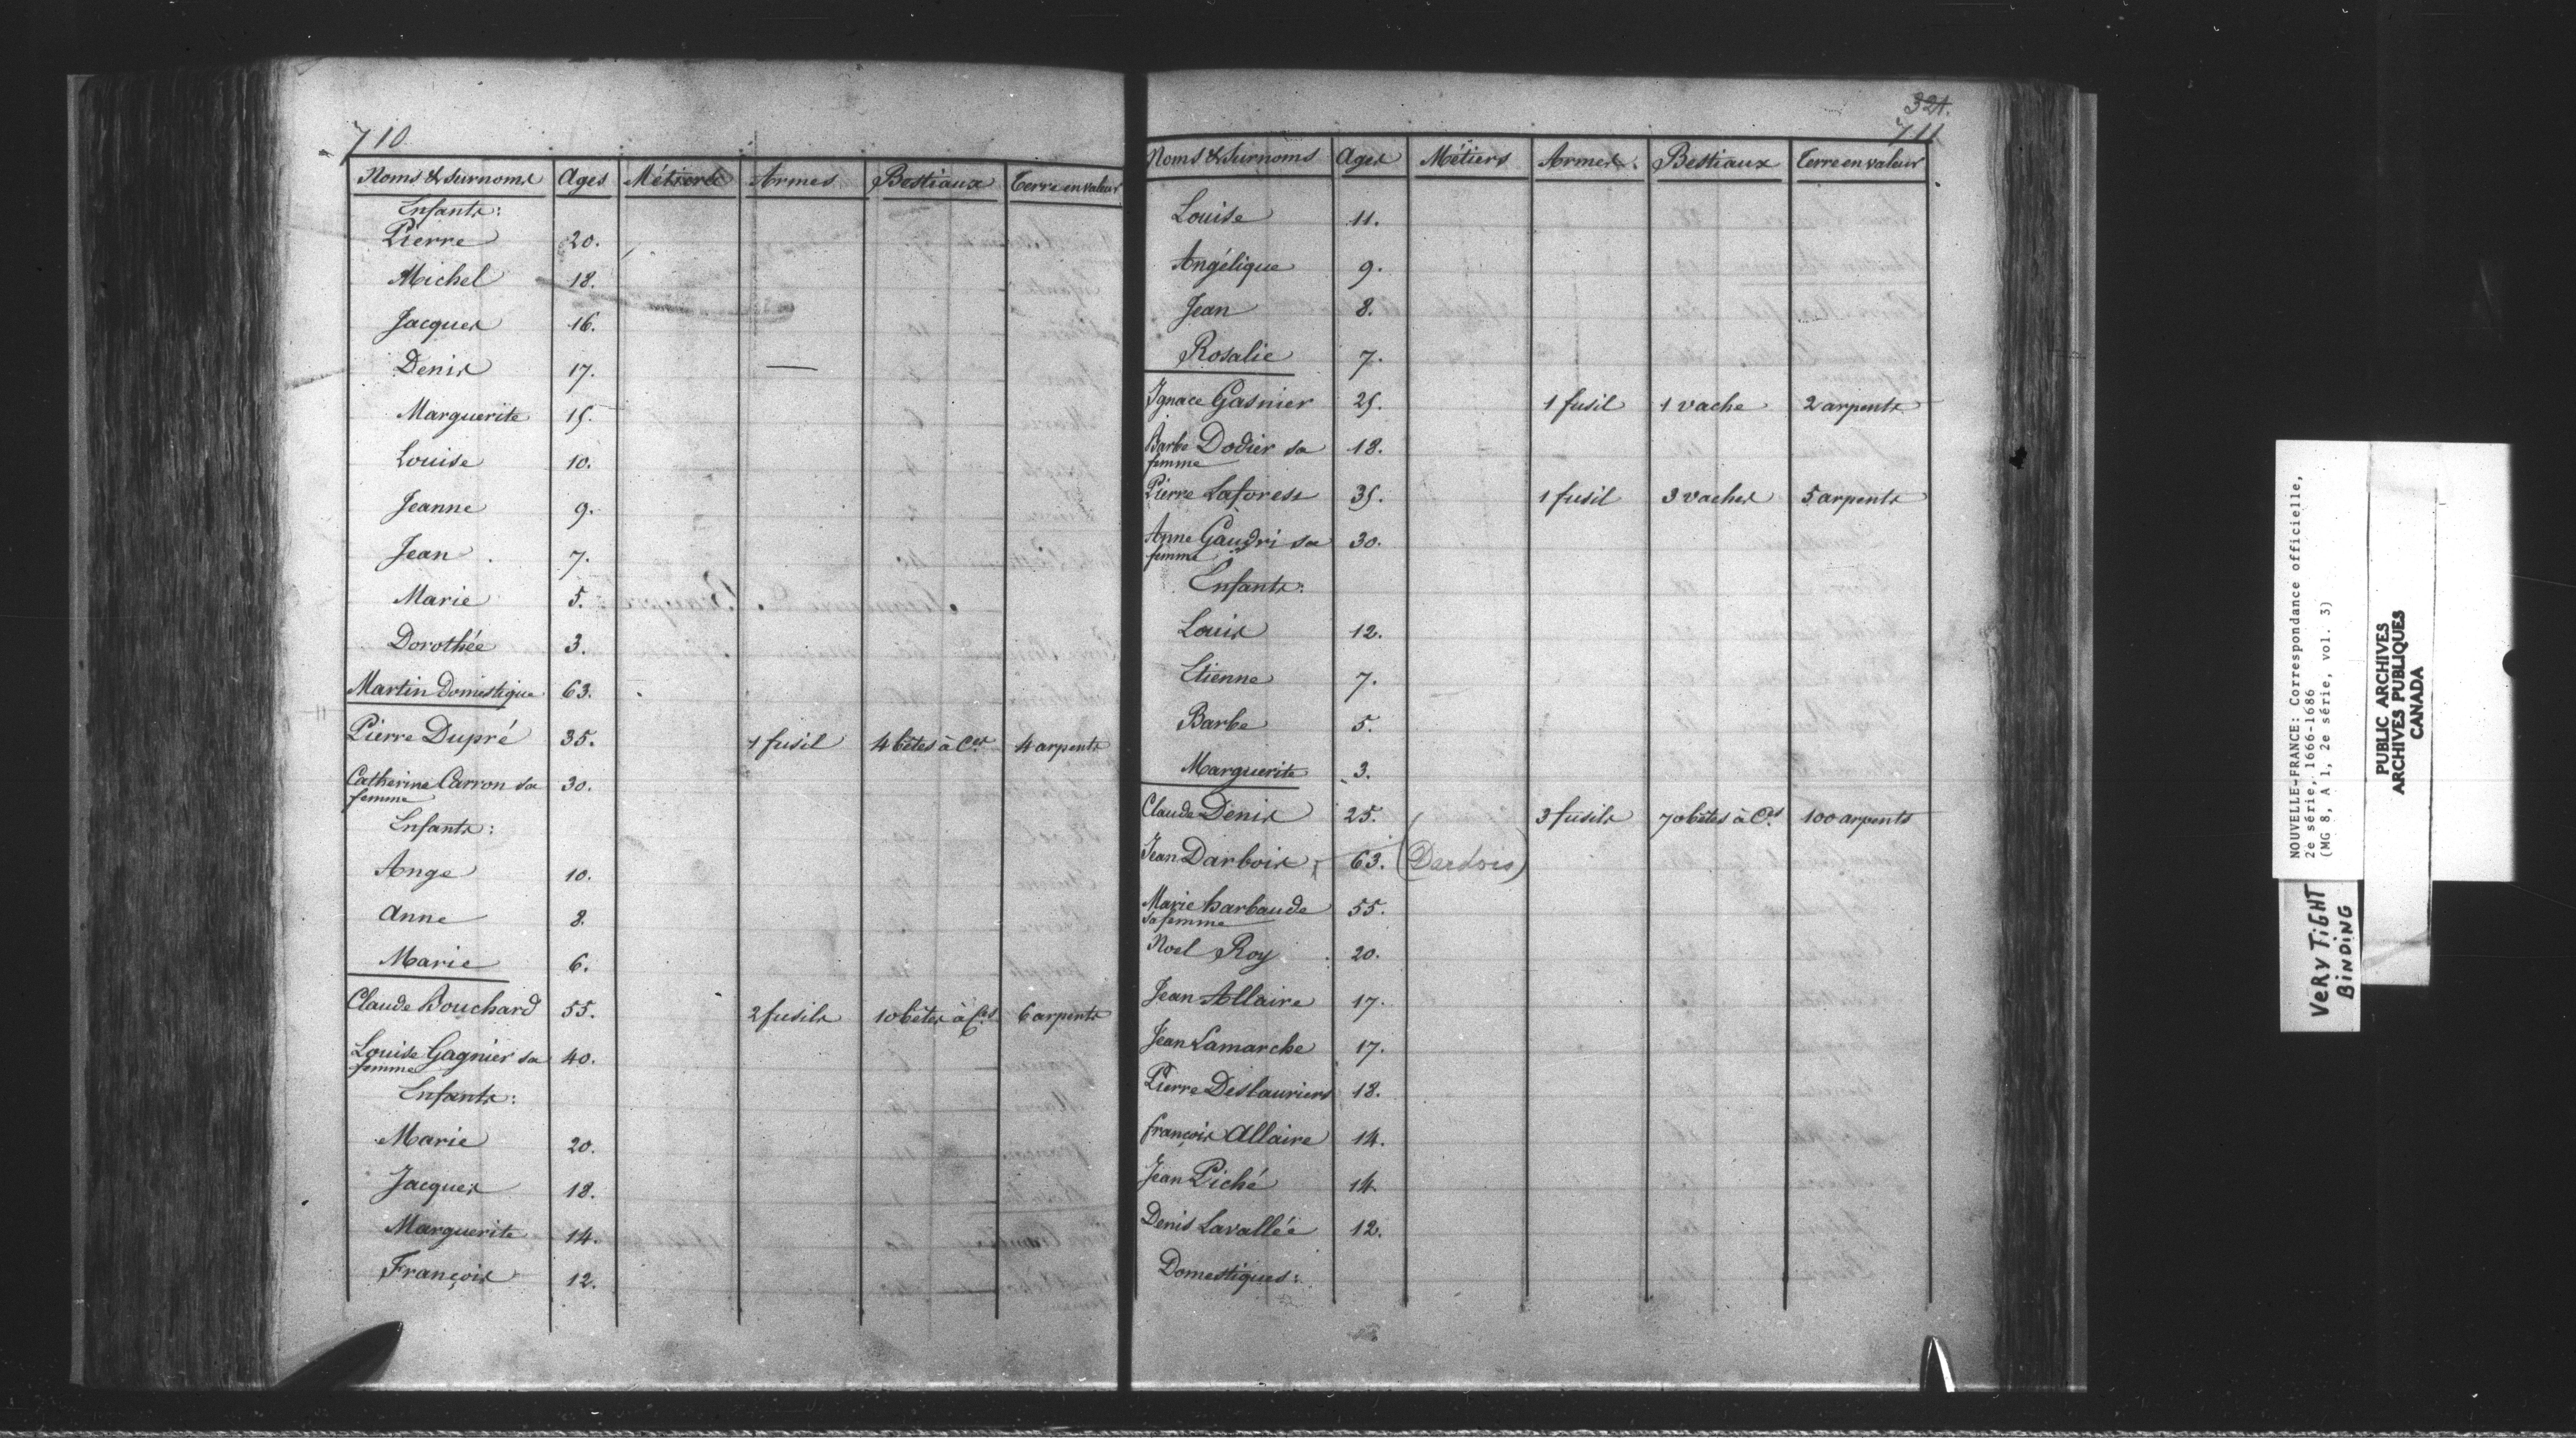 710
Noms & surnoms Ages Métiers Armes Bestiaux Terre en valeur
Enfants:
Pierre 20.
Michel 18.
Jacques 16.
Denis 17.
Marguerite 15.
Louise 10.
Jeanne 9.
Jean 7.
Marie 5.
Dorothée 3.
Martin Domestique 63.
Pierre Dupré 35. 1 fusil 4 bêtes à Ces 4 arpents
Catherine Carron sa 30.
femme
Enfants:
Ange 10.
Anne 8.
Marie 6.
Claude Bouchard 55. 2 fusils 10 bêtes à Ces 6 arpents
Louise Gagnier sa 40.
femme
Enfants:
Marie 20.
Jacques 18.
Marguerite 14.
François 12.
321.
711
Noms & Surnoms Ages Métiers Armes Bestiaux Terre en valeur
Louise 11.
Angélique 9.
Jean 8.
Rosalie 7.
Ignace Gasnier 25. 1 fusil 1 vache 2 arpents
Barbe Dodier sa 18.
femme
Pierre Laforest 35. 1 fusil 3 vaches 5 arpents
Anne Gaudri sa 30.
femme
Enfants:
Louis 12.
Etienne 7.
Barbe 5.
Marguerite 3.
Claude Denis 25. 3 fusils 70 bêtes à Ces 100 arpents
Jean Darbois 63. (Dardois)
Marie barbaude 55.
sa femme
Noel Roy 20.
Jean Allaire 17.
Jean Lamarche 17.
Pierre Deslauriers 18.
françois Allaire 14.
Jean Piché 14.
Denis Lavallée 12.
Domestiques:
NOUVELLE-FRANCE: Correspondance officielle,
2e série, 1666-1686
(MG 8, A 1, 2e série, vol. 3)
PUBLIC ARCHIVES
ARCHIVES PUBLIQUES
CANADA
VERY TIGHT
BINDING